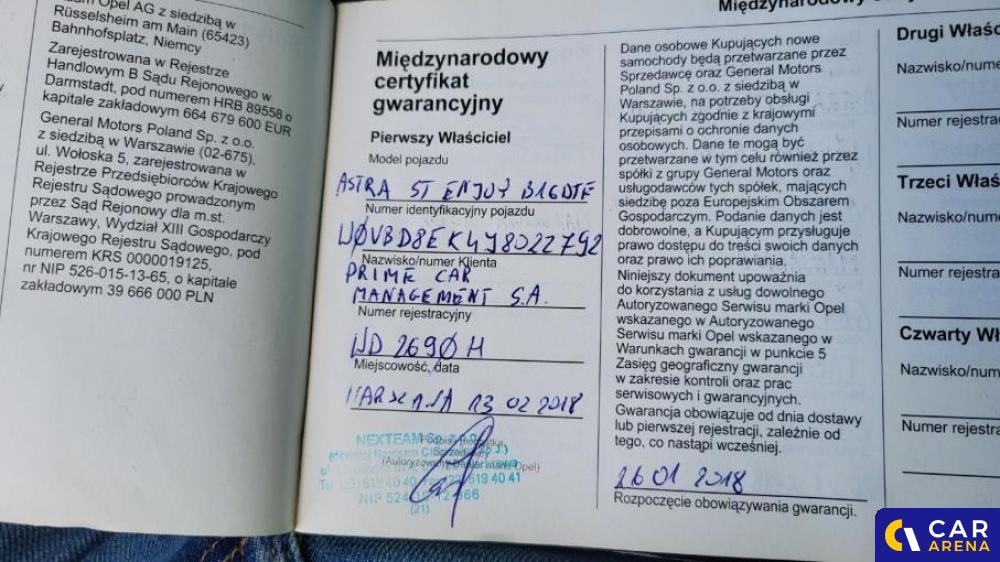 Opel AG z siedzibą w
Rüsselsheim am Main (65423)
Bahnhofsplatz, Niemcy
Zarejestrowana w Rejestrze
Handlowym B Sądu Rejonowego w
Darmstadt, pod numerem HRB 89558 o
kapitale zakładowym 664 679 600 EUR
General Motors Poland Sp. z o.o.
z siedzibą w Warszawie (02-675),
ul. Wołoska 5, zarejestrowana w
Rejestrze Przedsiębiorców Krajowego
Rejestru Sądowego prowadzonym
przez Sąd Rejonowy dla m.st.
Warszawy, Wydział XIII Gospodarczy
Krajowego Rejestru Sądowego, pod
numerem KRS 0000019125,
nr NIP 526-015-13-65, o kapitale
zakładowym 39 666 000 PLN
Międzynarodowy
certyfikat
gwarancyjny
Pierwszy Właściciel
Model pojazdu
ASTRA ST ENJOY B16DTE
Numer identyfikacyjny pojazdu
WØVBD8EK4J8022792
Nazwisko/numer Klienta
PRIME CAR
MANAGEMENT S.A.
Numer rejestracyjny
WD 269ØH
Miejscowość, data
WARSZAWA 13 02 2018
NEXTEAM Sp. z o.o.
(Autoryzowany Dealer marki Opel)
519 40 40 519 40 41
NIP
(21)
Międzynarodowy
Dane osobowe Kupujących nowe
samochody będą przetwarzane przez
Sprzedawcę oraz General Motors
Poland Sp. z o.o. z siedzibą w
Warszawie, na potrzeby obsługi
Kupujących zgodnie z krajowymi
przepisami o ochronie danych
osobowych. Dane te mogą być
przetwarzane w tym celu również przez
spółki z grupy General Motors oraz
usługodawców tych spółek, mających
siedzibę poza Europejskim Obszarem
Gospodarczym. Podanie danych jest
dobrowolne, a Kupującym przysługuje
prawo dostępu do treści swoich danych
oraz prawo ich poprawiania.
Niniejszy dokument upoważnia
do korzystania z usług dowolnego
Autoryzowanego Serwisu marki Opel
wskazanego w Autoryzowanego
Serwisu marki Opel wskazanego w
Warunkach gwarancji w punkcie 5
Zasięg geograficzny gwarancji
w zakresie kontroli oraz prac
serwisowych i gwarancyjnych.
Gwarancja obowiązuje od dnia dostawy
lub pierwszej rejestracji, zależnie od
tego, co nastąpi wcześniej.
26 01 2018
Rozpoczęcie obowiązywania gwarancji.
Drugi Właśc
Nazwisko/nume
Numer rejestrac
Trzeci Właś
Nazwisko/num
Numer rejestra
Czwarty Wł
Nazwisko/num
Numer rejestra
CAR
ARENA